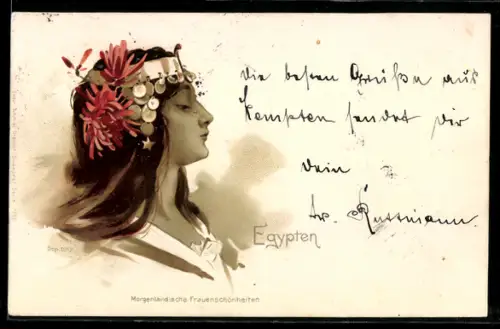 Die besten Grüße aus
Kempten sendet dir
dein
Egypten
Morgenländische Frauenschönheiten